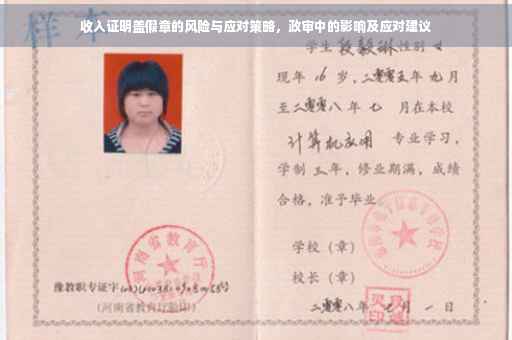 收入证明盖假章的风险与应对策略，政审中的影响及应对建议
样本
学生段毅琳性别女
现年16岁，二零零五年九月
至二零零八年七月在本校
计算机应用 专业学习，
学制三年，修业期满，成绩
合格，准予毕业。
学校（章）
校长（章）
二零零八年七月一日
河南省教育厅
豫教职专证字
（河南省教育厅验印）